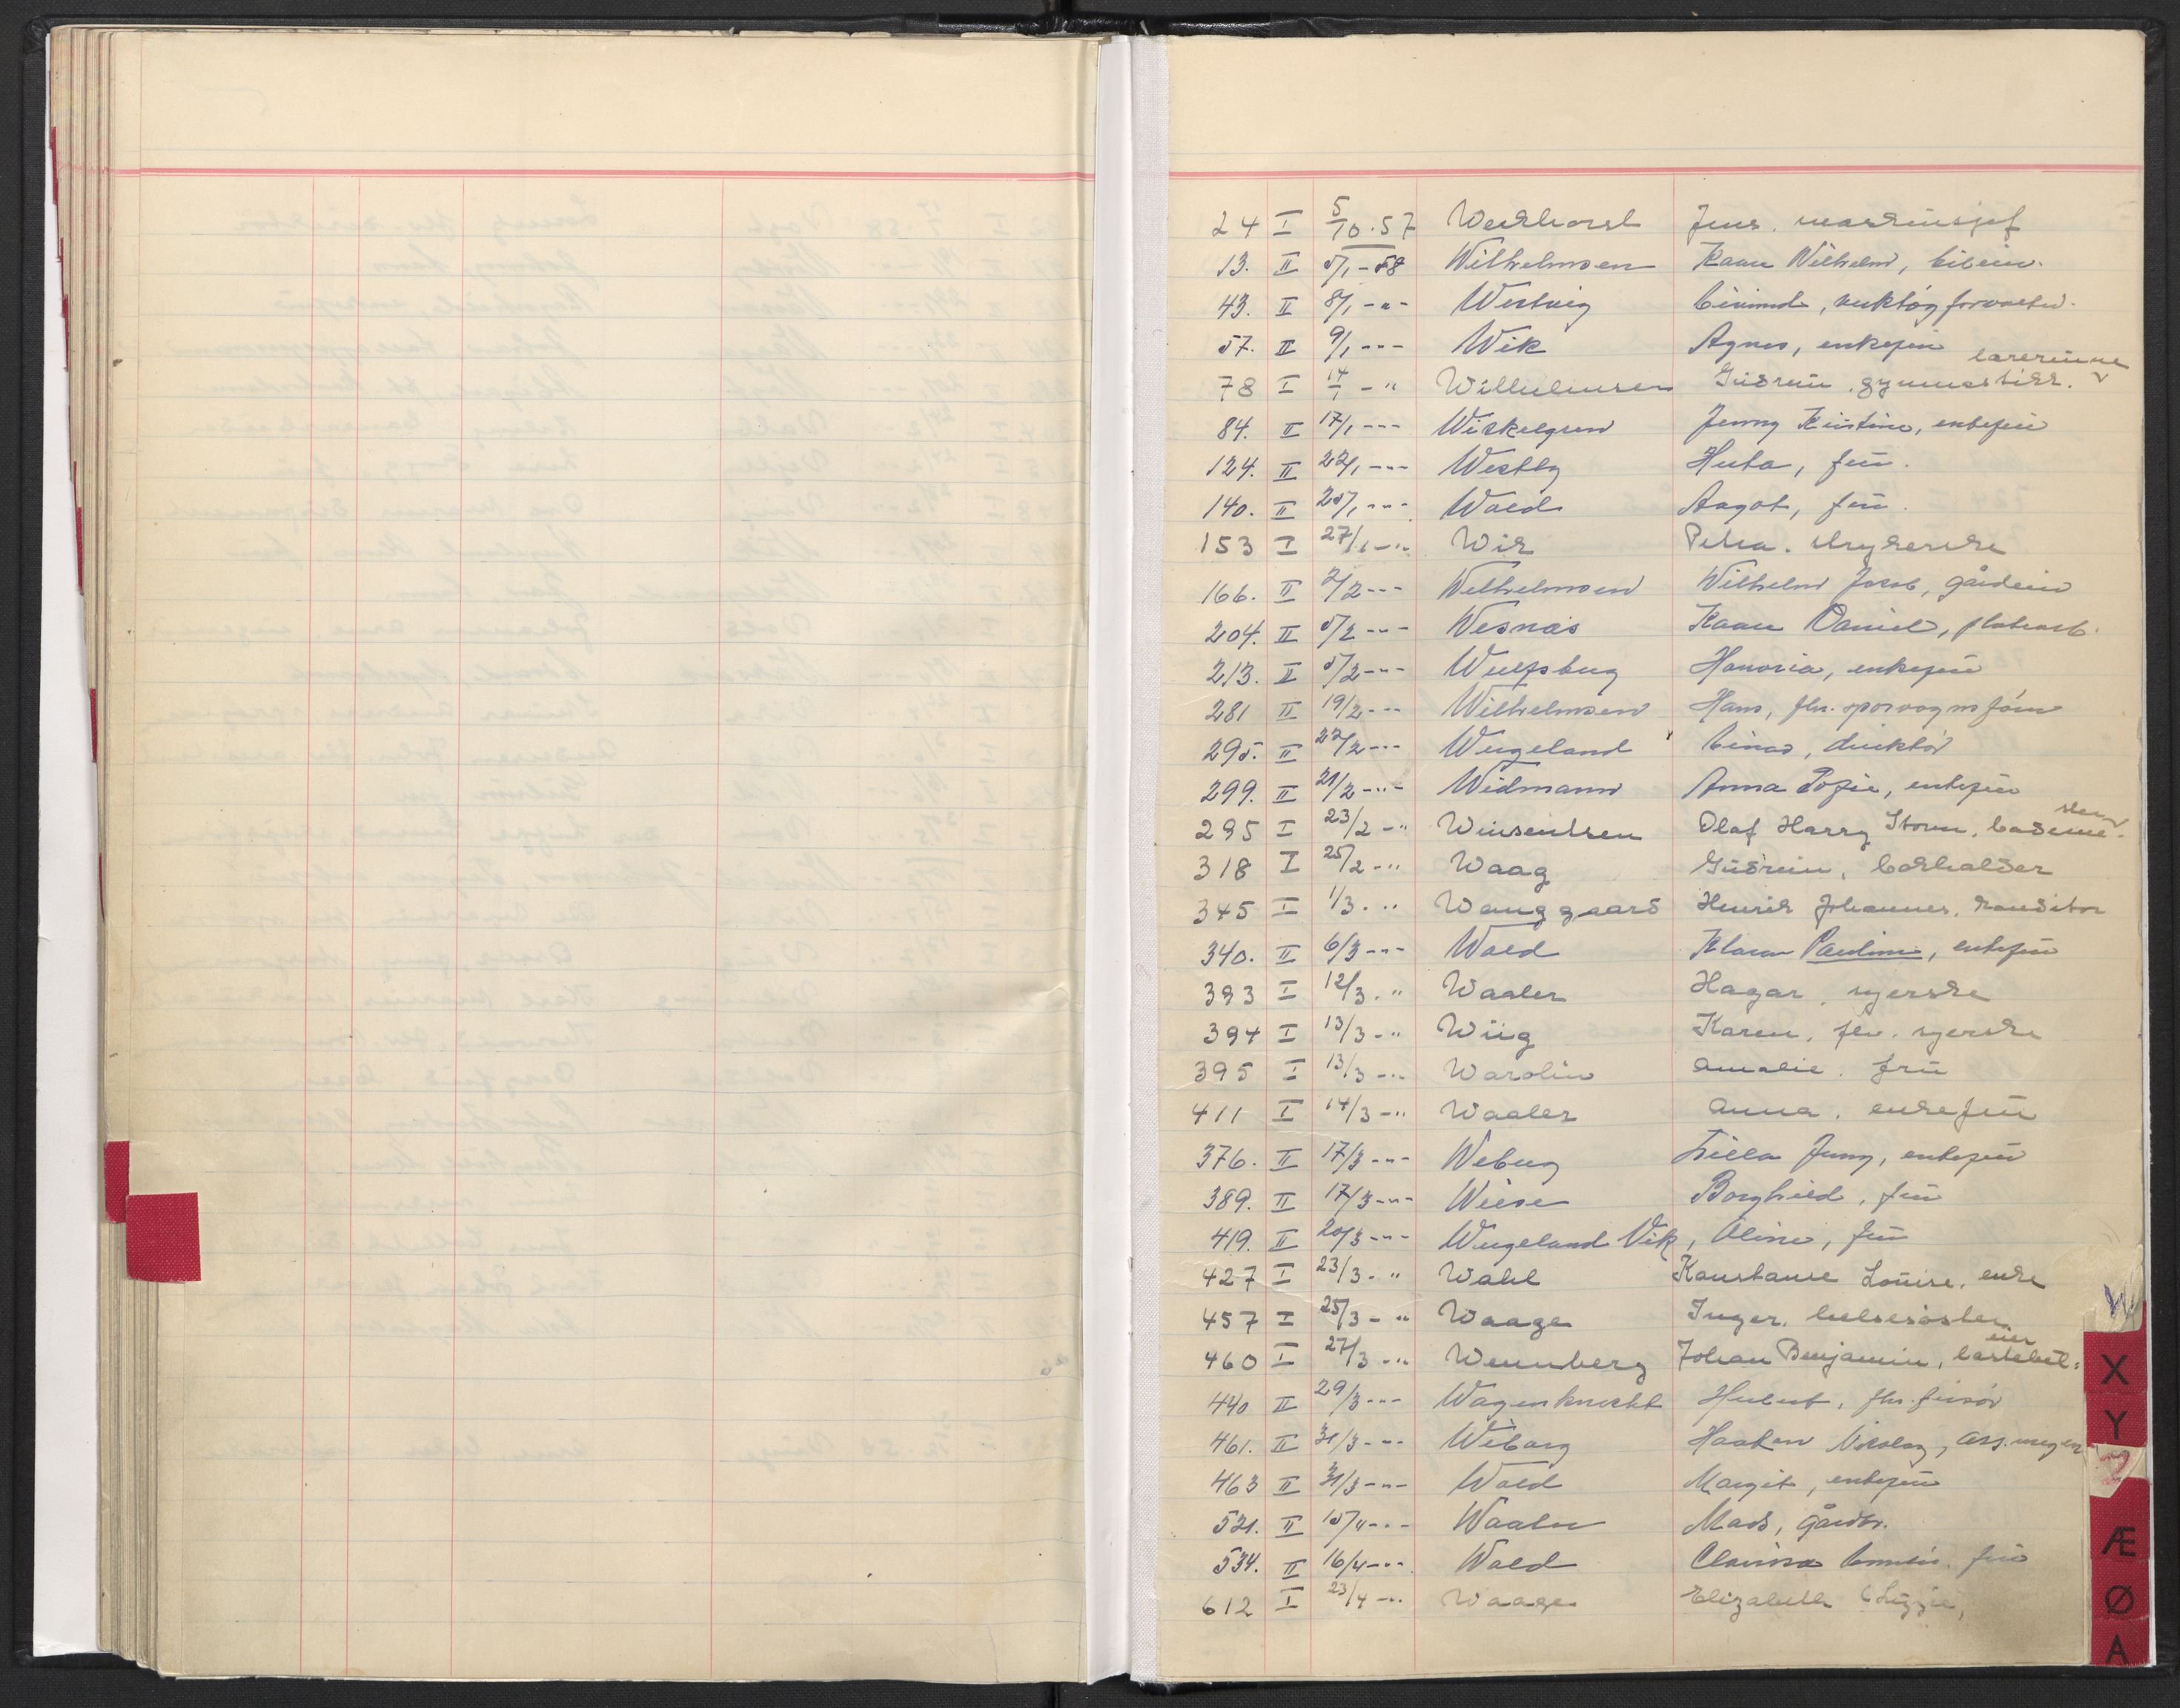 24 I 5/10.57 Werkhorst Jens. maskinsjef
13. II 5/1-58 Wilhelmsen Kaare Wilhelm,
43. II 8/1 -"- Westvig Eivind, verktøyforvalter.
57. II 9/1 -"- Wik Agnes, enkefru
78 I 14/1 -" Willelmsen Gudrun. gymnastikk. lærerinne
84. II 17/1 -"- Wiskelgren Jenny Kristine, enkefru
124. II 22/1 -"- Westby Herta, fru.
140. II 25/1 -"- Wold Aagot, fru.
153 I 27/1 -" Wik Petra. strykerske
166. II 2/2 -"- Wilhelmsen Wilhelm Jacob, gårdeier
204. II 5/2 -"- Wesnæs Kaare Daniel, platearb.
213. II 5/2 -"- Wulfsberg Honoria, enkefru
281 II 19/2 -"- Wilhelmsen Hans, fhv. sporvognsfører
295. II 22/2 -"- Wergeland Einar, direktør
299. II 21/2 -"- Widmann Anna Sofie, enkefru
295 I 23/2 -" Winsentsen Olaf Harry Storm. bademester
318 I 25/2 -" Waag Gudrun, bokholder
345 I 1/3. " Wanggaard Henrik Johannes. konditor
340. II 6/3 -"- Wold Klara Pauline, enkefru
393 I 12/3. " Waaler Hagar. syerske
394 I 13/3 -" Wiig Karen, fhv. syerske
395 I 13/3 -" Warolin Amalie. fru
411 I 14/3 -" Waaler Anna. enkefru
376. II 17/3 -"- Weberg Jenny, enkefru
389. II 17/3 -"- Wiese Borghild, fru
419. II 20/3 -"- Wergeland Vik, Oline, fru
427 I 23/3. " Wahl Konstanse Louise. enke
457 I 25/3 - " Waage Inger. helsesøster
460 I 27/3 -" Wennberg Johan Benjamin, lastebil=eier
440 II 29/3 -"- Wagenknecht Herbert, fhv. frisør
461. II 31/3 -"- Wiborg Haakon Nicolay,
463 II 31/3 -"- Wold Margit, enkefru
521. II 15/4 -"- Waaler Mads, gårdbr.
534. II 16/4 -"- Wold Clarissa fru
612 I 23/4 -" Waage Elizabeth (Lizzie,
W
X
Y
Æ
Ø
A